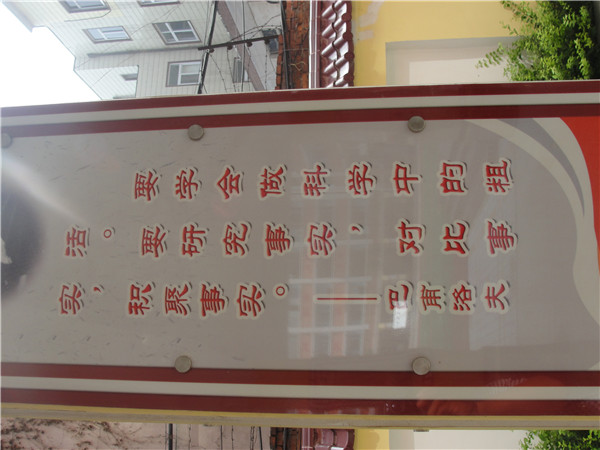 要学会做科学中的粗
活。要研究事实，对比事
实，积聚事实。——巴甫洛夫